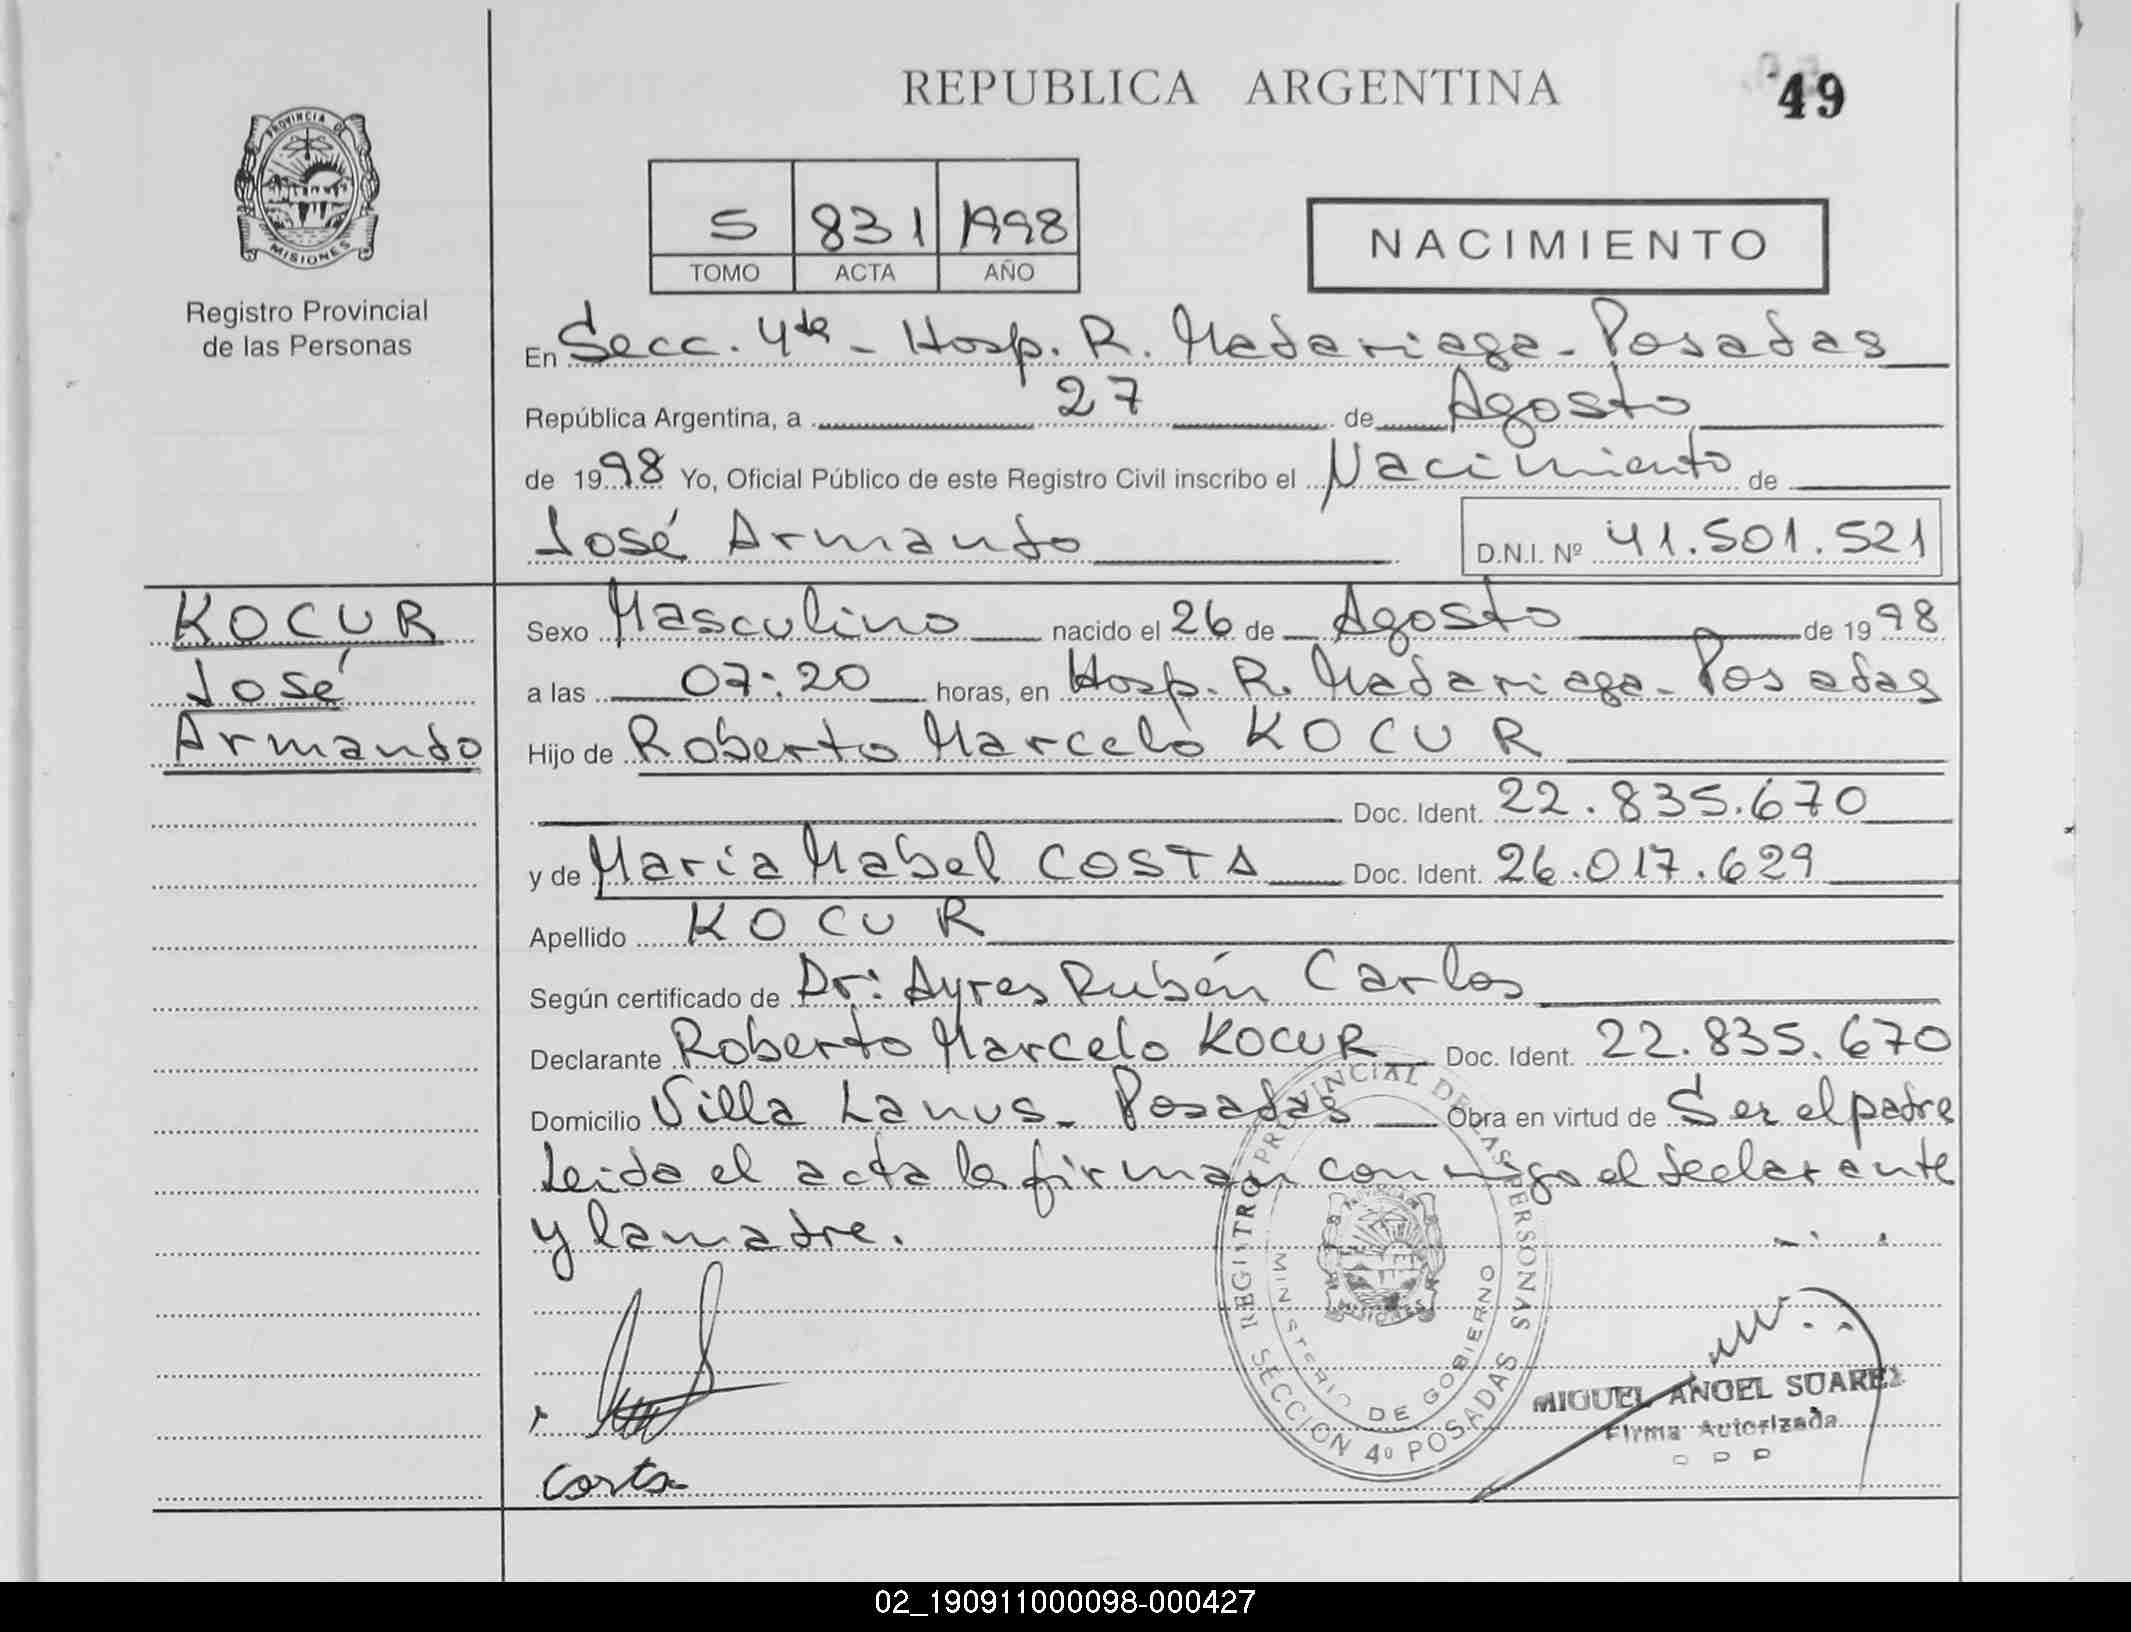 REPUBLICA ARGENTINA
49
PROVINCIA DE
MISIONES
Registro Provincial
de las Personas
5 831 1998
TOMO ACTA AÑO
NACIMIENTO
En Secc. 4ta - Hosp. R. Madariaga - Posadas
República Argentina, a 27 de Agosto
de 1998 Yo, Oficial Público de este Registro Civil inscribo el Nacimiento de
José Armando D.N.I. Nº 41.501.521
KOCUR
José
Armando
Sexo Masculino nacido el 26 de Agosto de 1998
a las 07:20 horas, en Hosp. R. Madariaga - Posadas
Hijo de Roberto Marcelo KOCUR
Doc. Ident. 22.835.670
y de María Mabel COSTA Doc. Ident. 26.017.629
Apellido KOCUR
Según certificado de Dr: Ayres Rubén Carlos
Declarante Roberto Marcelo KOCUR Doc. Ident. 22.835.670
Domicilio Villa Lanus - Posadas Obra en virtud de Ser el padre
Leida el acta la firman conmigo el declarante
y la madre.
REGISTRO PROVINCIAL DE LAS PERSONAS
MINISTERIO DE GOBIERNO
SECCION 4º POSADAS
MIGUEL ANGEL SUAREZ
Firma Autorizada
Costa
02_190911000098-000427